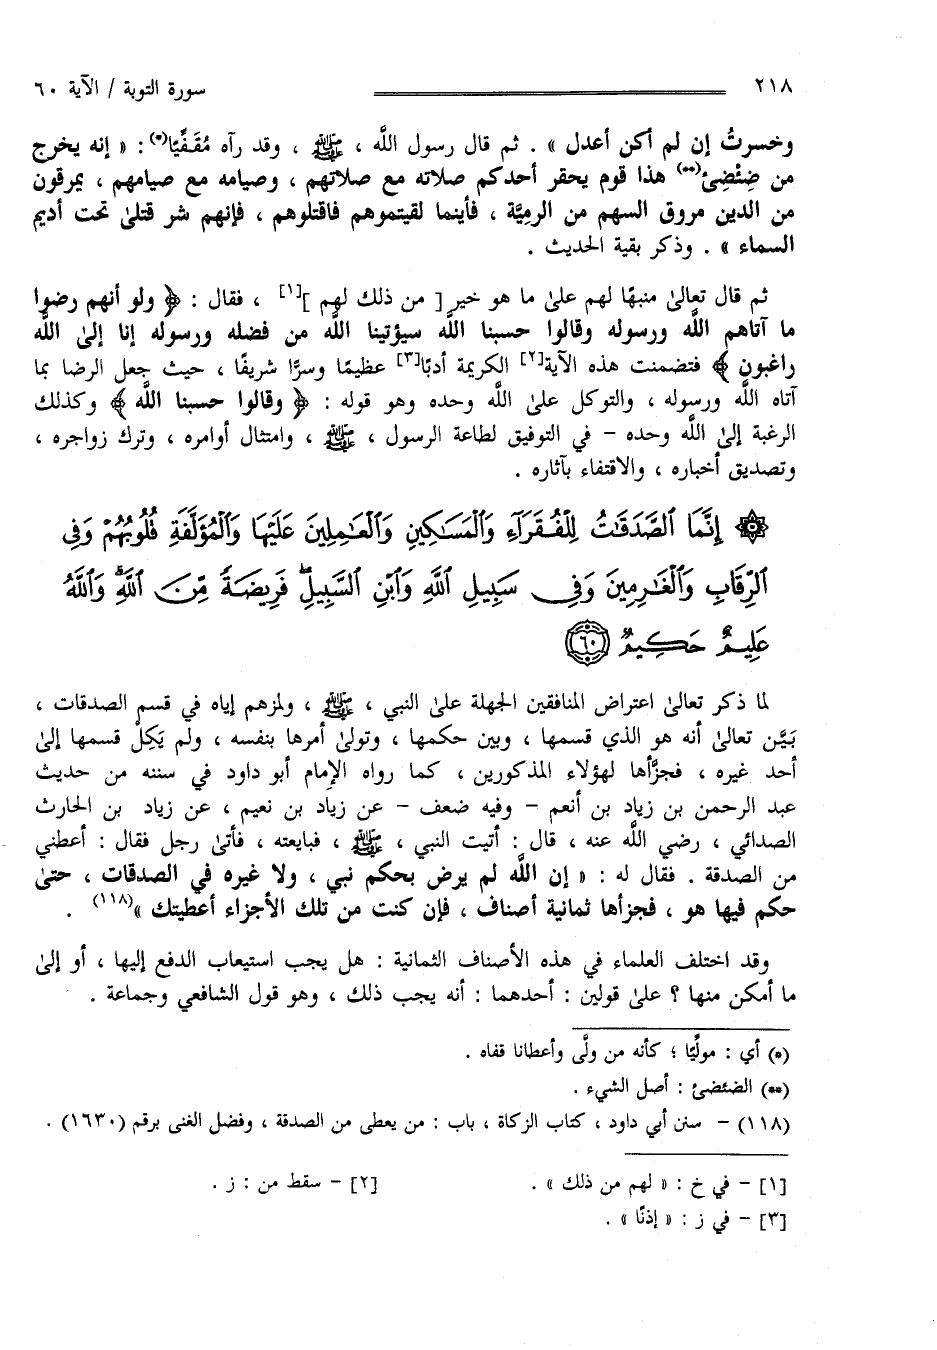 ٢١٨ سورة التوبة / الآية ٦٠
وخسرتُ إن لم أكن أعدل » . ثم قال رسول اللَّه ، ﷺ ، وقد رآه مُقَفِّيًا(*) : « إنه يخرج
من ضِئْضِئ(**) هذا قوم يحقر أحدكم صلاته مع صلاتهم ، وصيامه مع صيامهم ، يمرقون
من الدين مروق السهم من الرمِيَّة ، فأينما لقيتموهم فاقتلوهم ، فإنهم شر قتلىٰ تحت أديم
السماء » . وذكر بقية الحديث .
ثم قال تعالىٰ منبهًا لهم علىٰ ما هو خير [ من ذلك لهم ][١] ، فقال : ﴿ ولو أنهم رضوا
ما آتاهم اللَّه ورسوله وقالوا حسبنا اللَّه سيؤتينا اللَّه من فضله ورسوله إنا إلىٰ اللَّه
راغبون ﴾ فتضمنت هذه الآية[٢] الكريمة أدبًا[٣] عظيمًا وسرًّا شريفًا ، حيث جعل الرضا بما
آتاه اللَّه ورسوله ، والتوكل علىٰ اللَّه وحده وهو قوله : ﴿ وقالوا حسبنا اللَّه ﴾ وكذلك
الرغبة إلىٰ اللَّه وحده – في التوفيق لطاعة الرسول ، ﷺ ، وامتثال أوامره ، وترك زواجره ،
وتصديق أخباره ، والاقتفاء بآثاره .
۞ إِنَّمَا ٱلصَّدَقَٰتُ لِلْفُقَرَآءِ وَٱلْمَسَٰكِينِ وَٱلْعَٰمِلِينَ عَلَيْهَا وَٱلْمُؤَلَّفَةِ قُلُوبُهُمْ وَفِى
ٱلرِّقَابِ وَٱلْغَٰرِمِينَ وَفِى سَبِيلِ ٱللَّهِ وَٱبْنِ ٱلسَّبِيلِ ۖ فَرِيضَةً مِّنَ ٱللَّهِ ۗ وَٱللَّهُ
عَلِيمٌ حَكِيمٌ ٦٠
لما ذكر تعالىٰ اعتراض المنافقين الجهلة علىٰ النبي ، ﷺ ، ولمزهم إياه في قسم الصدقات ،
بَيَّن تعالىٰ أنه هو الذي قسمها ، وبين حكمها ، وتولىٰ أمرها بنفسه ، ولم يَكِلْ قسمها إلىٰ
أحد غيره ، فجزَّأها لهؤلاء المذكورين ، كما رواه الإمام أبو داود في سننه من حديث
عبد الرحمن بن زياد بن أنعم – وفيه ضعف – عن زياد بن نعيم ، عن زياد بن الحارث
الصدائي ، رضي اللَّه عنه ، قال : أتيت النبي ، ﷺ ، فبايعته ، فأتىٰ رجل فقال : أعطني
من الصدقة . فقال له : « إن اللَّه لم يرض بحكم نبي ، ولا غيره في الصدقات ، حتىٰ
حكم فيها هو ، فجزأها ثمانية أصناف ، فإن كنت من تلك الأجزاء أعطيتك »(١١٨) .
وقد اختلف العلماء في هذه الأصناف الثمانية : هل يجب استيعاب الدفع إليها ، أو إلىٰ
ما أمكن منها ؟ علىٰ قولين : أحدهما : أنه يجب ذلك ، وهو قول الشافعي وجماعة .
(*) أي : مولِّيًا ؛ كأنه من ولَّى وأعطانا قفاه .
(**) الضئضئ : أصل الشيء .
(١١٨) – سنن أبي داود ، كتاب الزكاة ، باب : من يعطى من الصدقة ، وفضل الغنى برقم (١٦٣٠) .
[١] – في خ : « لهم من ذلك » . [٢] – سقط من : ز .
[٣] – في ز : « إذنًا » .